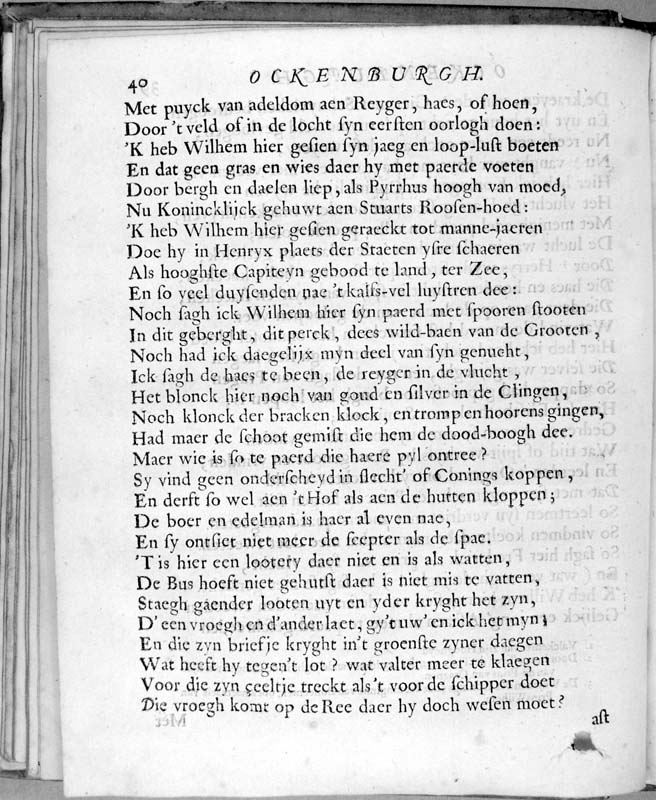 40 OCKENBURGH.
Met puyck van adeldom aen Reyger, haes, of hoen,
Door 't veld of in de locht ſyn eerſten oorlogh doen:
'K heb Wilhem hier geſien ſyn jaeg en loop-luſt boeten
En dat geen gras en wies daer hy met paerde voeten
Door bergh en daelen liep, als Pyrrhus hoogh van moed,
Nu Konincklijck gehuwt aen Stuarts Rooſen-hoed:
'K heb Wilhem hier geſien geraeckt tot manne-jaeren
Doe hy in Henryx plaets der Staeten yſre ſchaeren
Als hooghſte Capiteyn gebood te land, ter Zee;
En ſo veel duyſenden nae 't kalfs-vel luyſtren dee:
Noch ſagh ick Wilhem hier ſyn paerd met ſpooren ſtooten
In dit geberght, dit perck, dees wild-baen van de Grooten,
Noch had ick daegelijx myn deel van ſyn genucht,
Ick ſagh de haes te been, de reyger in de vlucht,
Het blonck hier noch van goud en ſilver in de Clingen,
Noch klonck der bracken klock, en tromp en hoorens gingen,
Had maer de ſchoot gemiſt die hem de dood-boogh dee.
Maer wie is ſo te paerd die haere pyl ontree?
Sy vind geen onderſcheyd in ſlecht' of Conings koppen,
En derft ſo wel aen 't Hof als aen de hutten kloppen;
De boer en edelman is haer al even nae,
En ſy ontſiet niet meer de ſcepter als de ſpae.
'T is hier een lootery daer niet en is als watten,
De Bus hoeft niet gehutſt daer is niet mis te vatten,
Staegh gaender looten uyt en yder kryght het zyn,
D' een vroegh en d'ander laet, gy't uw' en ick het myn;
En die zyn briefje kryght in't groenſte zyner daegen
Wat heeft hy tegen't lot? wat valter meer te klaegen
Voor die zyn çeeltje treckt als 't voor de ſchipper doet
Die vroegh komt op de Ree daer hy doch weſen moet?
aſt